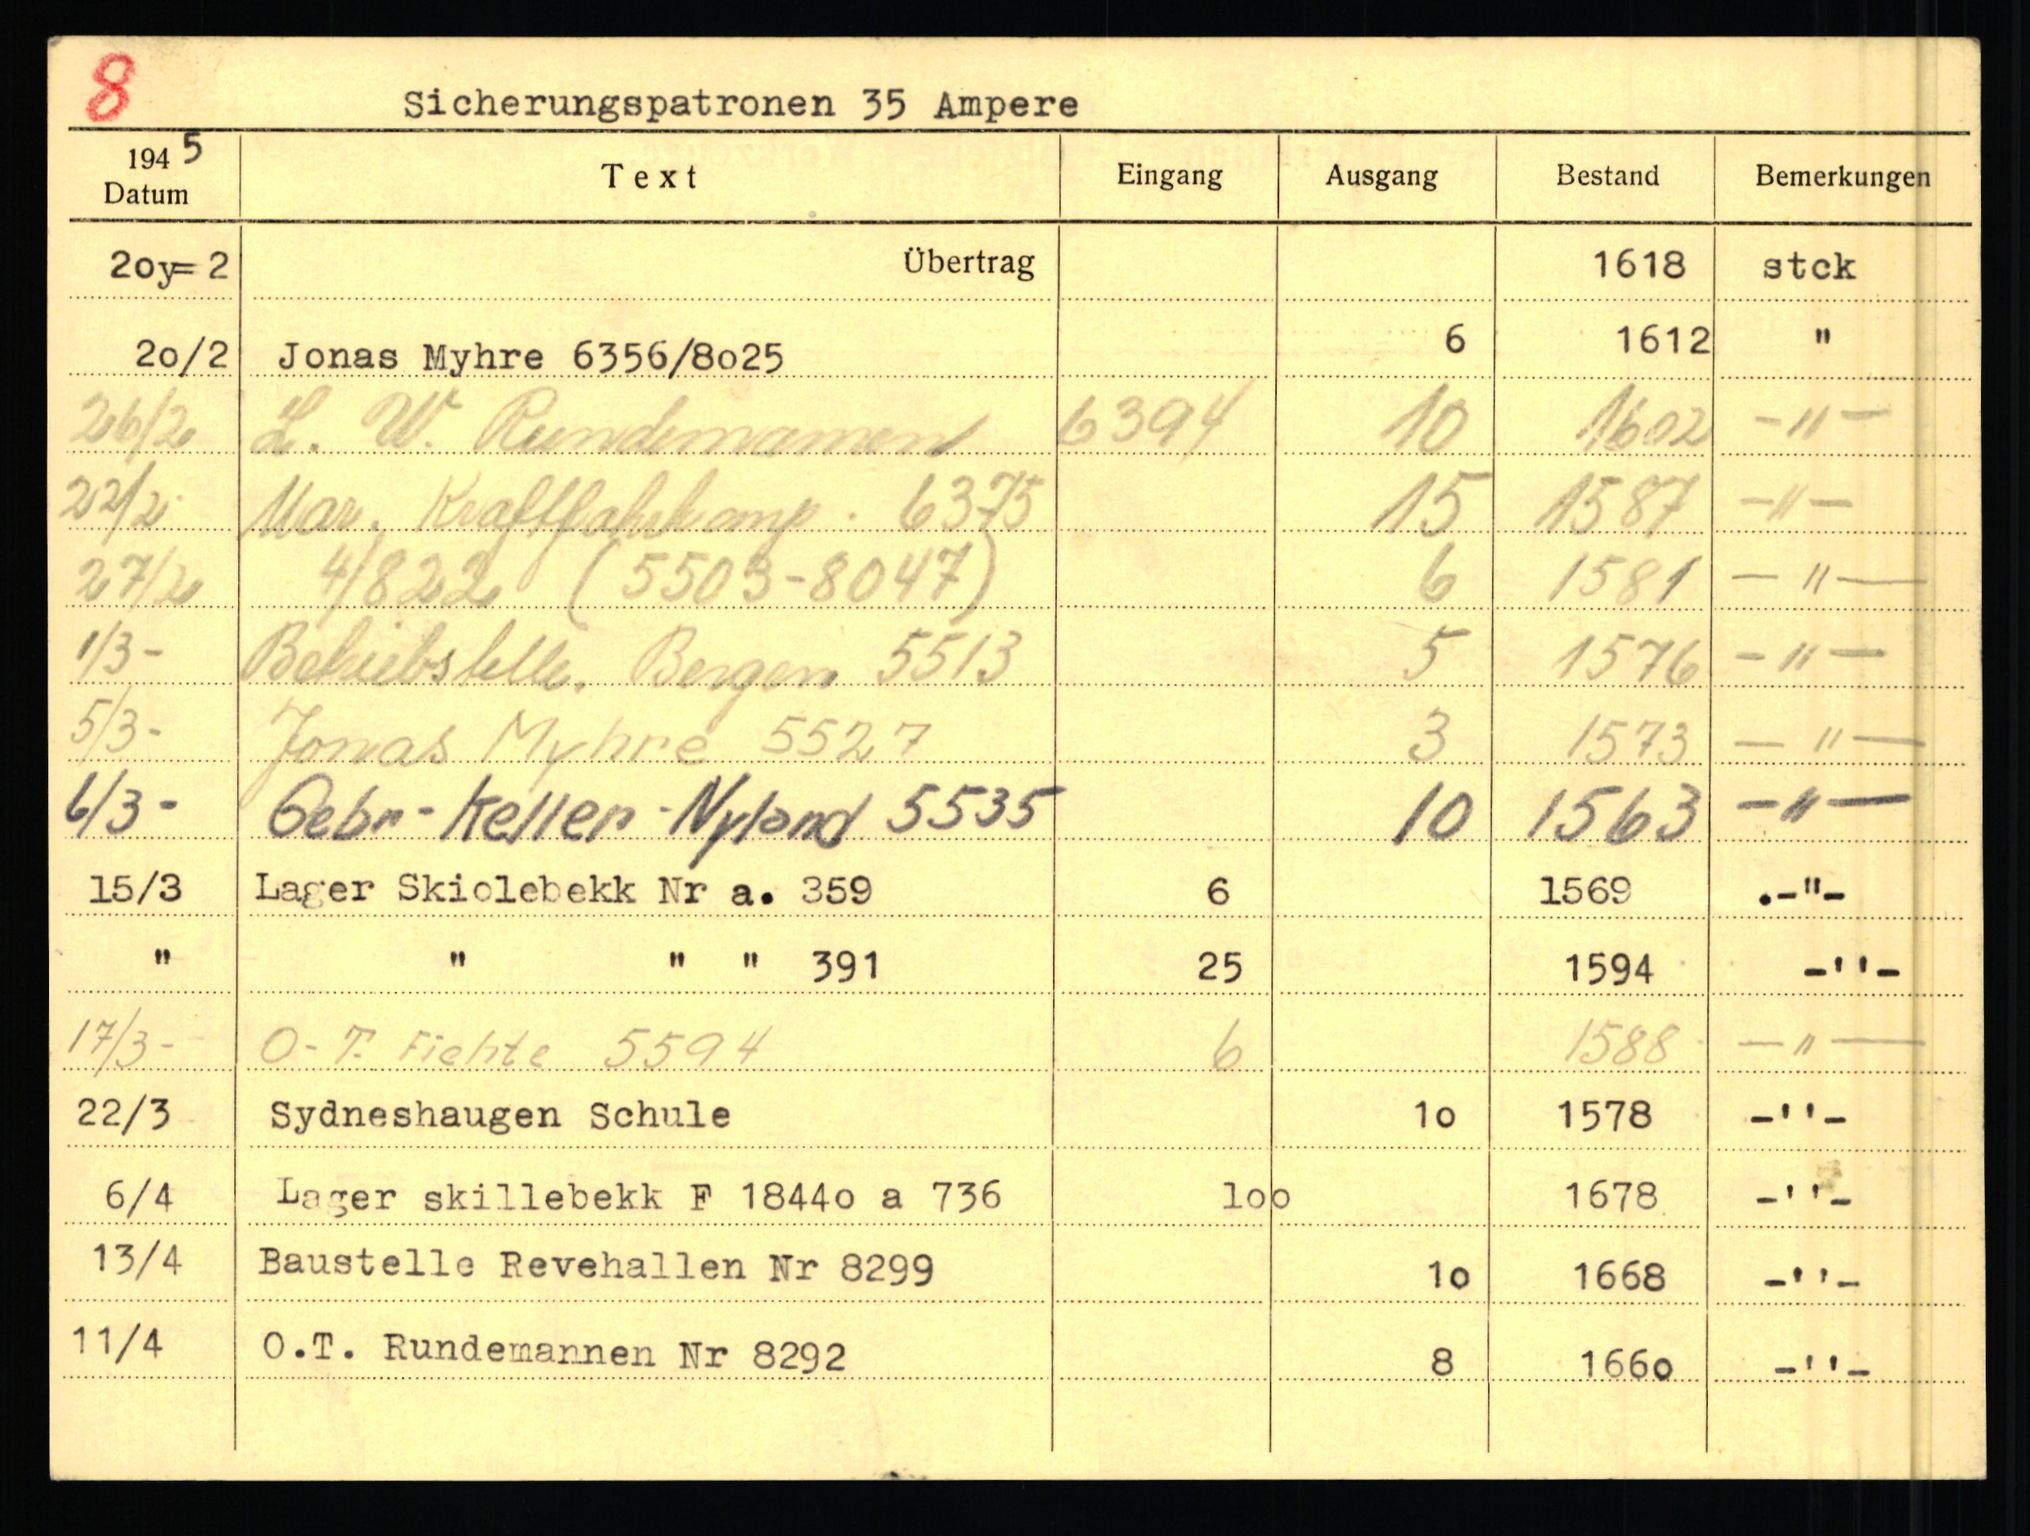 8
Sicherungspatronen 35 Ampere
194 5
Datum Text Eingang Ausgang Bestand Bemerkungen
2oy=2 Übertrag 1618 stck
2o/2 Jonas Myhre 6356/8o25 6 1612 "
26/2 L. W. Rundemannen 6394 10 1602 -"-
22/2 Mar. Kraftfahrkomp. 6375 15 1587 -"-
27/2 4/822 (5503-8047) 6 1581 -"-
1/3- Betriebstelle. Bergen 5513 5 1576 -"-
5/3- Jonas Myhre 5527 3 1573 -"-
6/3- Gebr-Keller-Nyland 5535 10 1563 -"-
15/3 Lager Skiolebekk Nr a. 359 6 1569 .-"-
" " " " 391 25 1594 -''-
17/3- O-T. Fichte 5594 6 1588 -"-
22/3 Sydneshaugen Schule 1o 1578 -''-
6/4 Lager skillebekk F 1844o a 736 1oo 1678 -''-
13/4 Baustelle Revehallen Nr 8299 1o 1668 -''-
11/4 O.T. Rundemannen Nr 8292 8 166o -''-